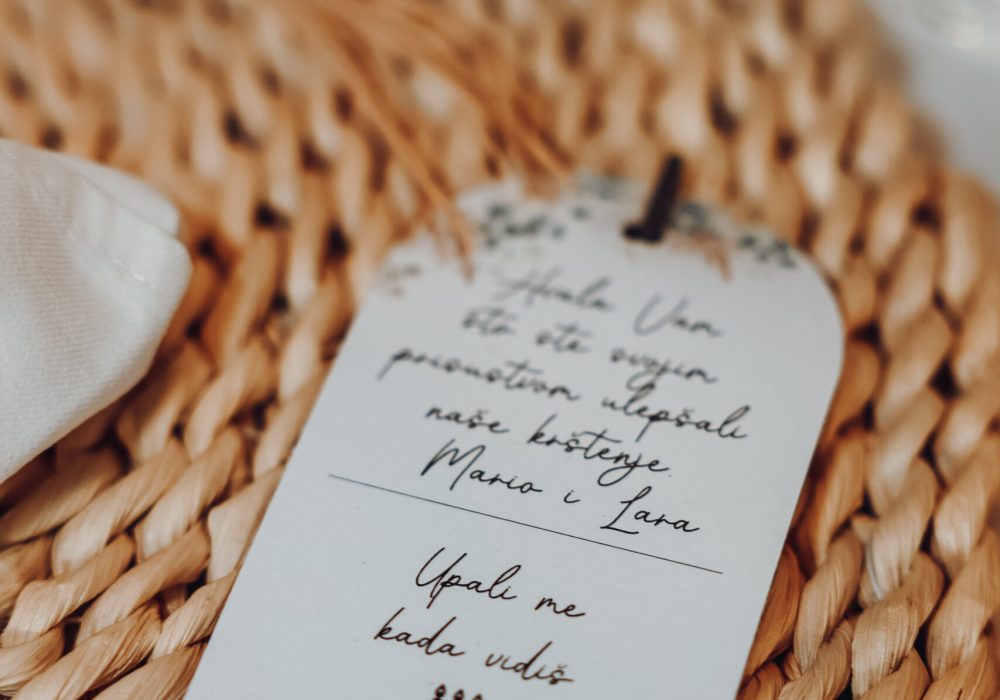 Hvala Vam
što ste svojim
prisustvom ulepšali
naše krštenje
Mario i Lara
Upali me
kada vidiš